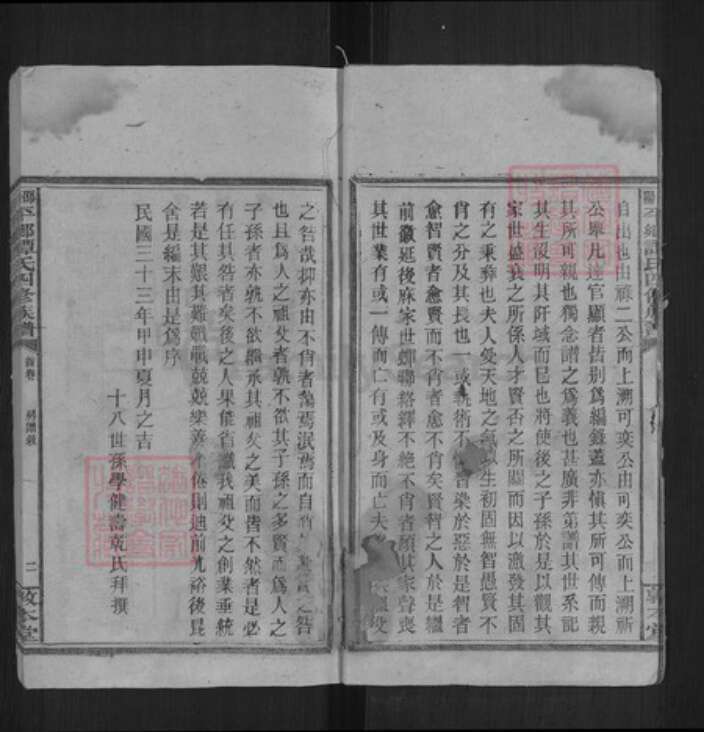 自出也由祿二公而上溯可奕公由可奕公而上溯祈
公舉凡達官顯者皆别爲編錄蓋亦慎其所可傳而親
其所可親也獨念譜之爲義也甚廣非第譜其世系記
其生沒明其阡域而已也將使後之子孫於是以觀其
家世盛衰之所係人才賢否之所關而因以激發其固
有之秉彝也夫人受天地之氣以生初固無智愚賢不
肖之分及其長也或執術不 習染於惡於是智者
愈智賢者愈賢而不肖者愈不肖矣賢智之人於是繼
前徽延後庥家世蟬聯絡繹不絶不肖者隕其家聲喪
其世業有或一傳而亡有或及身而亡夫
之咎哉抑亦由不肖者蕩焉泯焉而自 之咎
也且爲人之祖父者孰不欲其子孫之多賢而爲人之
子孫者亦孰不欲繼承其祖父之美而皆不然者是必
有任其咎者矣後之人果能省識我祖父之創業垂統
若是其艱其難戰戰兢兢樂善不倦則迪前光裕後昆
舍是編末由是爲序
民國三十三年甲申夏月之吉
十八世孫學健壽乾氏拜撰
平鄉譚氏四修族譜
首卷
二
敦本堂